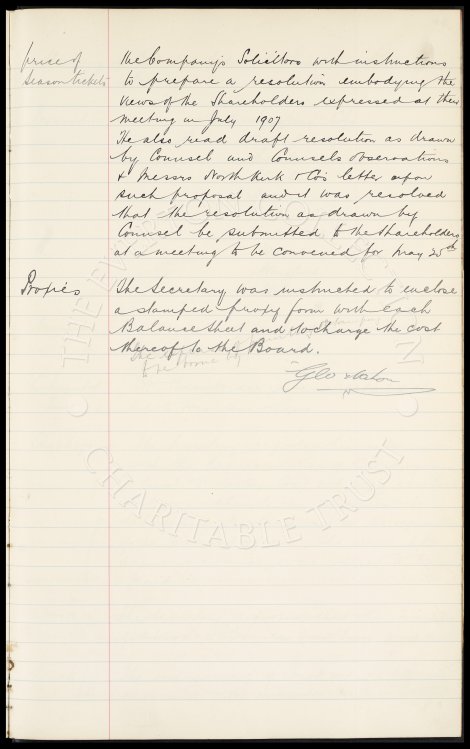 price of
season tickets
the Company's Solicitors with instructions
to prepare a resolution embodying the
views of the Shareholders expressed at their
meeting in July 1907
He also read draft resolution as drawn
by Counsel and Counsels observations
& Messrs North Kirk & Cos letter upon
such proposal and it was resolved
that the resolution as drawn by
Counsel be submitted to the Shareholders
at a meeting to be convened for May 25th
Proxies
The Secretary was instructed to enclose
a stamped proxy form with each
Balance Sheet and to charge the cost
thereof to the Board.
to be borne by
Geo Mahon
THE EVERTON
CHARITABLE TRUST